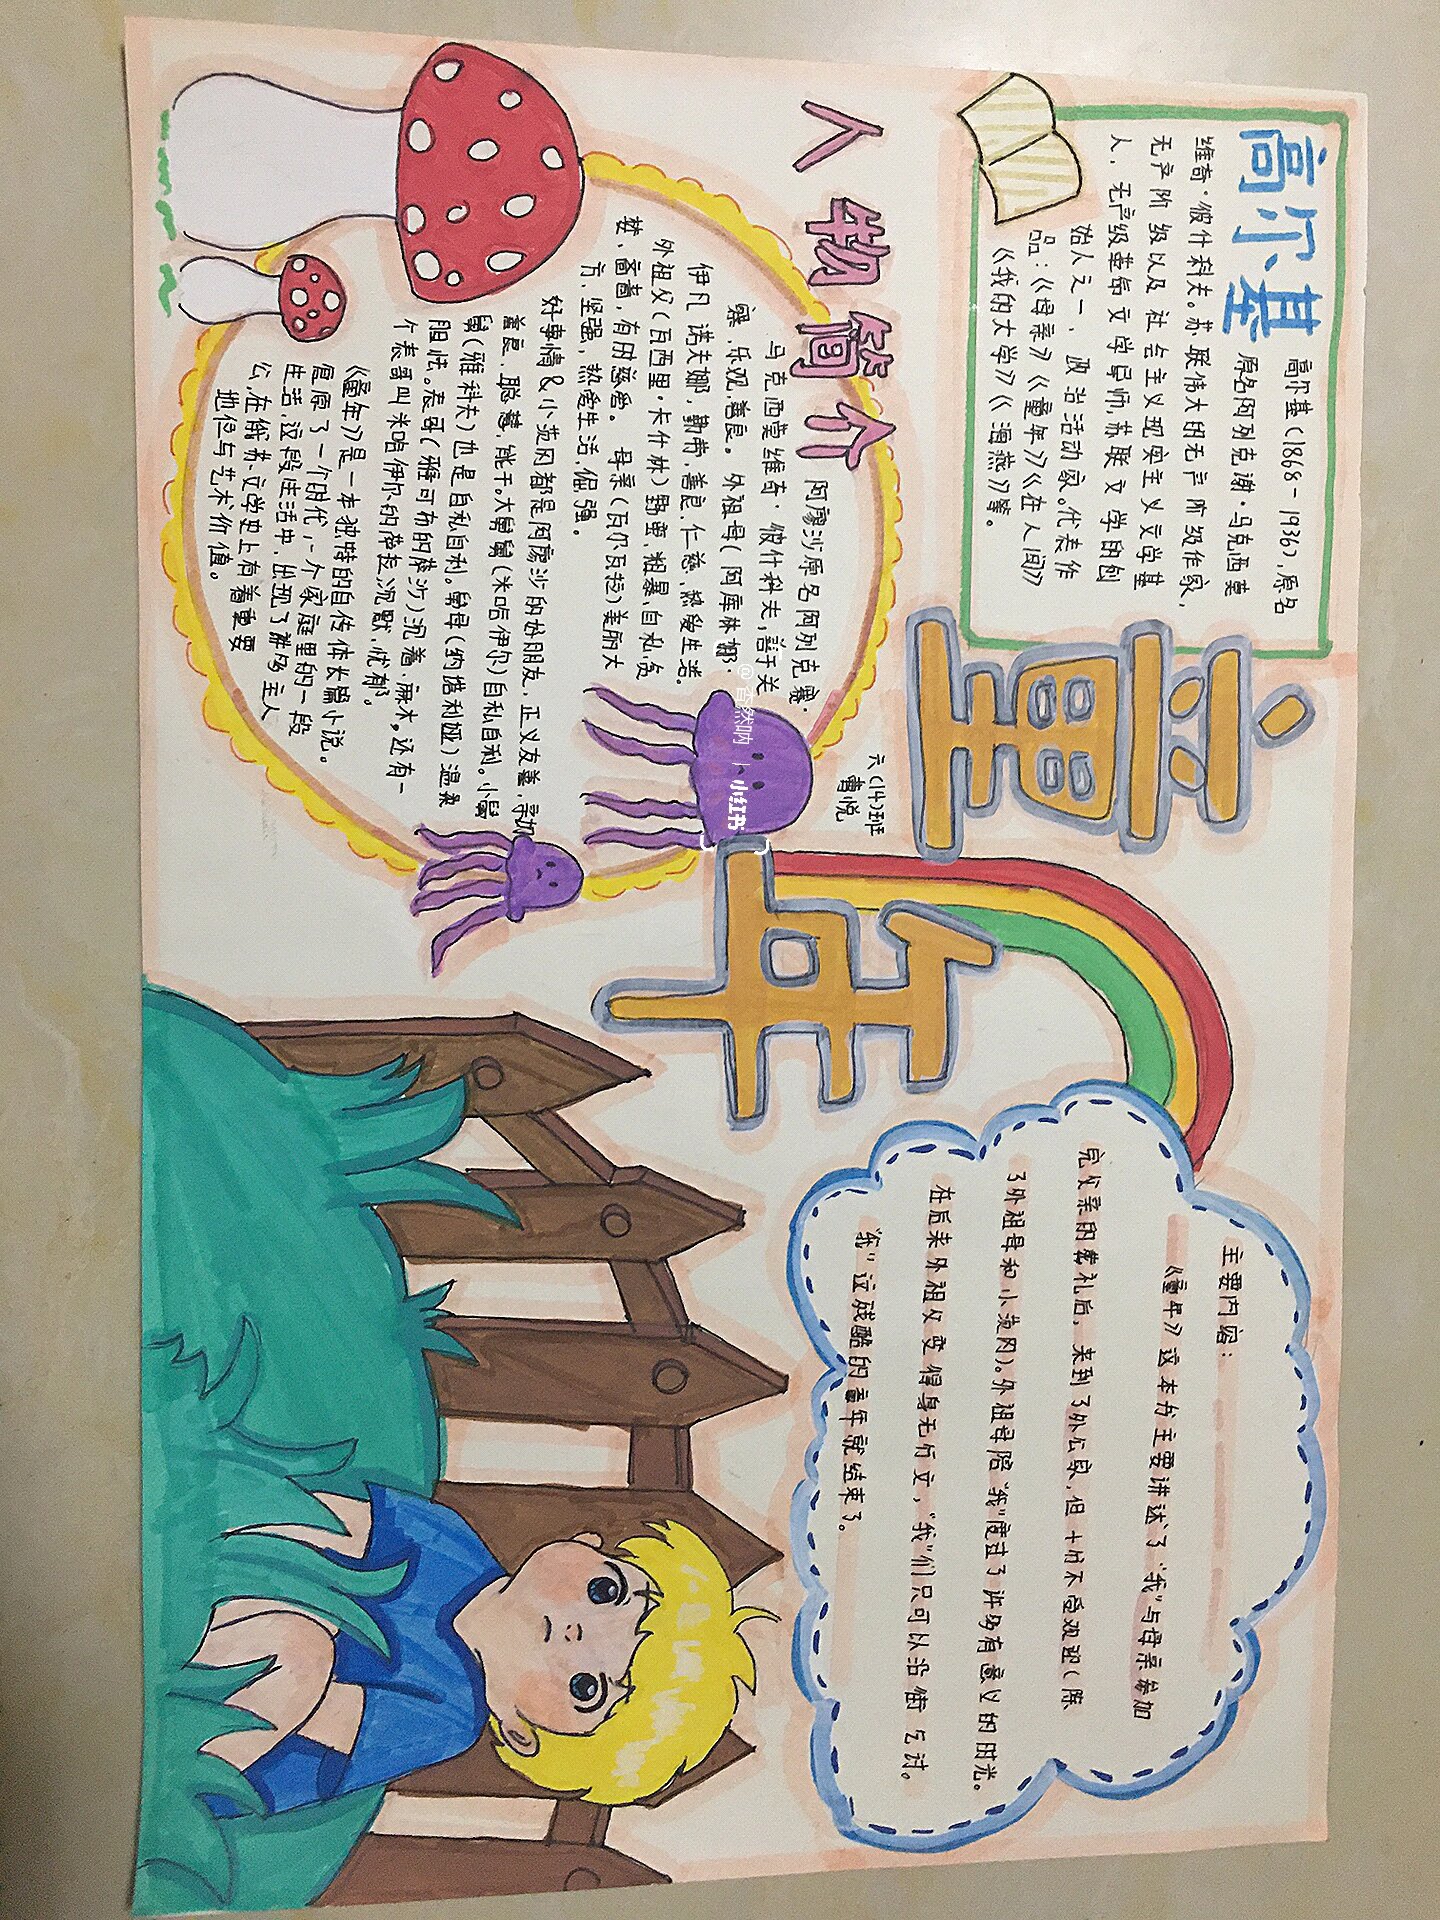 高尔基
高尔基(1868-1936),原名
原名阿列克谢·马克西莫
维奇·彼什科夫。苏联伟大的无产阶级作家,
无产阶级以及社会主义现实主义文学基
人、无产级革命文学导师,苏联文学的创
始人之一、政治活动家。代表作
品:《母亲》《童年》《在人间》
《我的大学》《海燕》等。
童年
六(14)班
曹悦
人物简介
阿廖沙原名阿列克赛·
马克西莫维奇·彼什科夫,善于关
察、乐观,善良。外祖母(阿库林娜·
伊凡诺夫娜,勤劳,善良,仁慈,热爱生活。
外祖父(瓦西里·卡什林)野蛮,粗暴,自私贪
婪、吝啬,有时慈爱。母亲(瓦尔瓦拉)美丽大
方,坚强,热爱生活,倔强。
好事情&小茨冈都是阿廖沙的好朋友,正义友善,
善良、聪慧,能干。大舅舅(米哈伊尔)自私自利。小舅
舅(雅科夫)也是自私自利。舅母(纳塔利娅)温柔
胆怯。表哥(雅可布的萨沙)沉着,麻木,还有一
个表哥叫米哈伊尔的萨拉,沉默,忧郁。
《童年》是一本独特的自传体长篇小说。
它原了一个时代,一个家庭里的一段
生活,这段生活中,出现了诸多主人
公,在俄苏文学史上有着重要
地位与艺术价值。
主要内容:
《童年》这本书主要讲述了“我”与母亲参加
完父亲的葬礼后,来到了外公家,但十分不受欢迎(除
了外祖母和小茨冈)。外祖母陪“我”度过了许多有意义的时光。
在后来外祖父变得身无分文,“我”们只可以沿街乞讨。
“我”这残酷的童年就结束了。
小红书